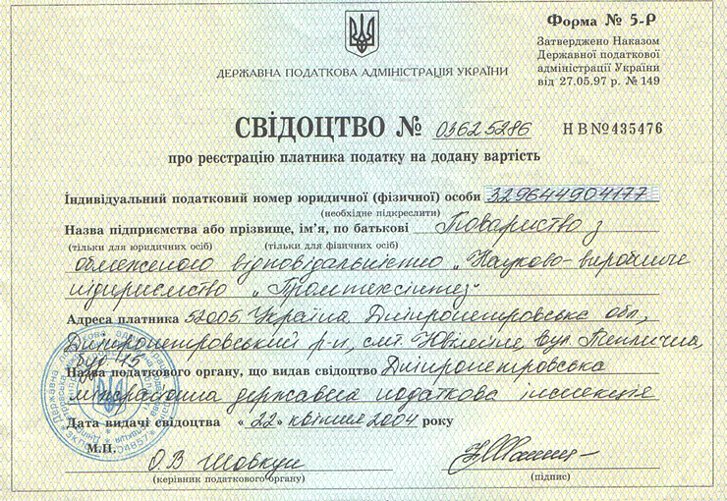 Форма № 5-Р
Затверджено Наказом
Державної податкової
адміністрації України
від 27.05.97 р. № 149
ДЕРЖАВНА ПОДАТКОВА АДМІНІСТРАЦІЯ УКРАЇНИ
СВІДОЦТВО № 03625286 НВ№435476
про реєстрацію платника податку на додану вартість
Індивідуальний податковий номер юридичної (фізичної) особи 329644904177
(необхідне підкреслити)
Назва підприємства або прізвище, ім'я, по батькові Товариство з
(тільки для юридичних осіб) (тільки для фізичних осіб)
обмеженою відповідальністю „Науково-виробниче
підприємство „Промтексінтез"
Адреса платника 52005, Україна, Дніпропетровська обл.,
Дніпропетровський р-н, смт. Ювілейне, вул. Теплична,
буд 15
Назва податкового органу, що видав свідоцтво Дніпропетровська
міжрайонна державна податкова інспекція
Дата видачі свідоцтва « 22 » квітня 2004 року
М.П.
О.В Шовкун
(керівник податкового органу) (підпис)